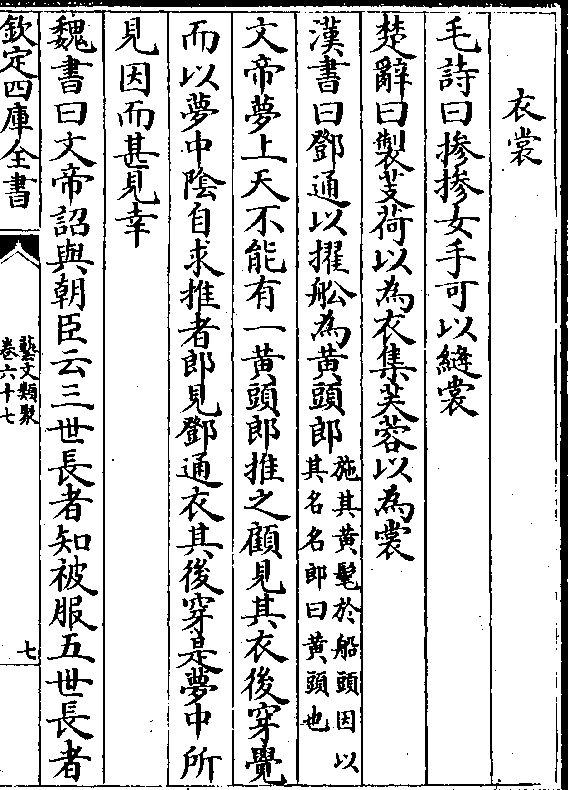 衣裳
毛詩曰摻摻女手可以縫裳
楚辭曰製芰荷以為衣集芙蓉以為裳
漢書曰鄧通以擢舩為黄頭郎施其黄髦於船頭因以
其名名郎曰黄頭也
文帝夢上天不能有一黄頭郎推之顧見其衣後穿覺
而以夢中陰自求推者郎見鄧通衣其後穿是夢中所
見因而甚見幸
魏書曰文帝詔與朝臣云三世長者知被服五世長者
欽定四庫全書
藝文類聚
卷六十七
七